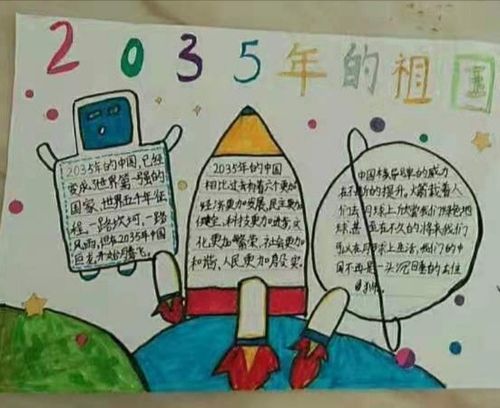 2035年的祖国
2035年的中国,已经
变成了世界第一强的
国家,世世代代年征
程,一路坎坷,一路
风雨,但在2035年中国
巨龙开始腾飞。
2035年的中国
相比过去有着六更加
经济更加发展、民主更加
健全、科技更加进步、文
化更加繁荣、社会更加
和谐、人民更加殷实。
中国核导弹的威力
在不断的提升,
们去月球上
球,甚至在不久的将来我们
可以在月球上生活,我们的中
国不再是一头沉睡的